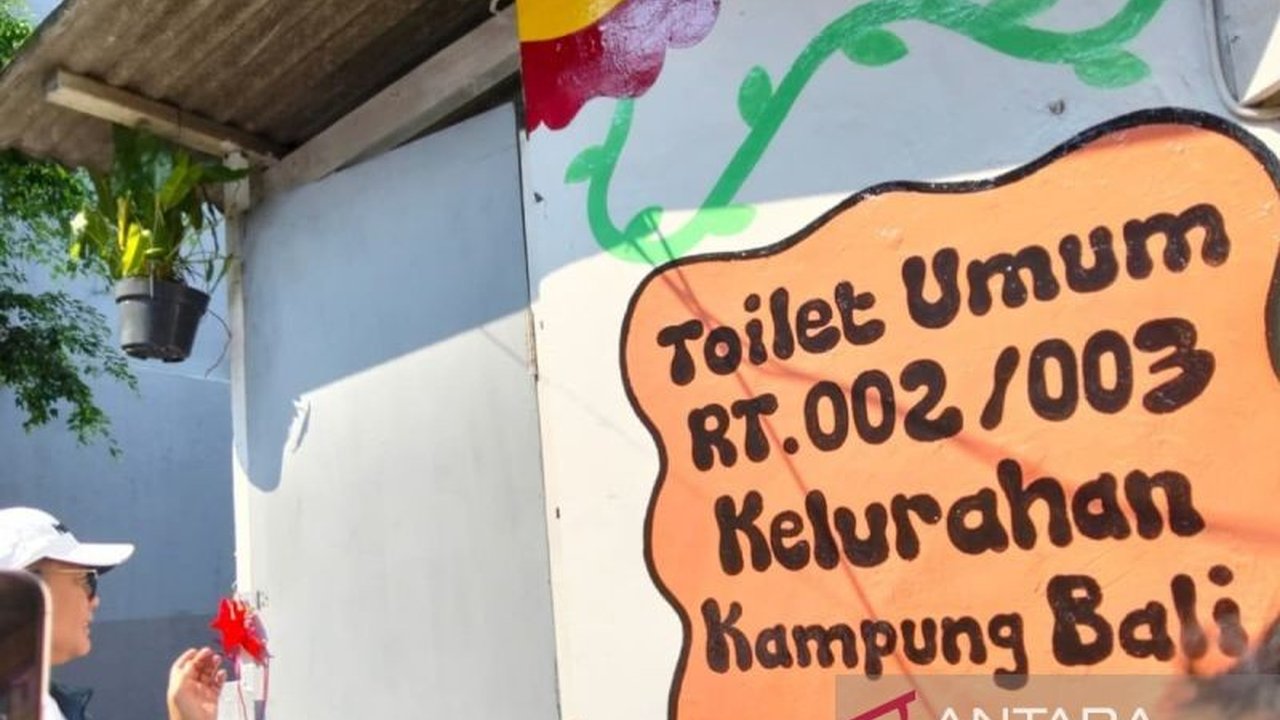 Toilet Umum
RT.002/003
Kelurahan
Kampung Bali
ANTARA